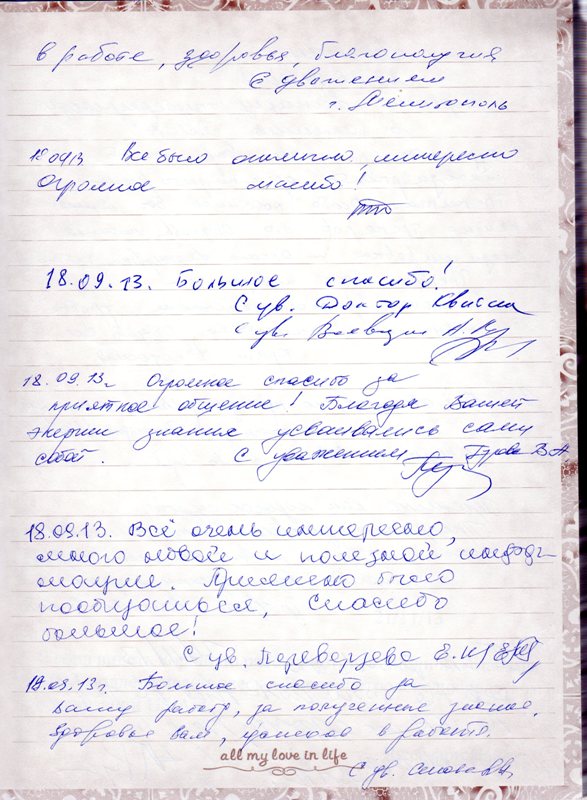 в работе, здоровья, благополучия
С уважением
г. Мелитополь
18.09.13 Все было отлично, интересно
Огромное спасибо!
18.09.13. Большое спасибо!
С ув. Доктор
С ув.
18.09.13г Огромное спасибо за
приятное общение! Благодаря Вашей
энергии знания усваивались сами
собой. С уважением
18.09.13. Всё очень интересно,
много новой и полезной инфор-
мации. Приятно было
пообщаться, Спасибо
большое!
С ув. Переверзева Е.Н.
18.09.13г. Большое спасибо за
вашу работу, за полученные знания.
Здоровья Вам, успехов в работе.
all my love in life
С ув.